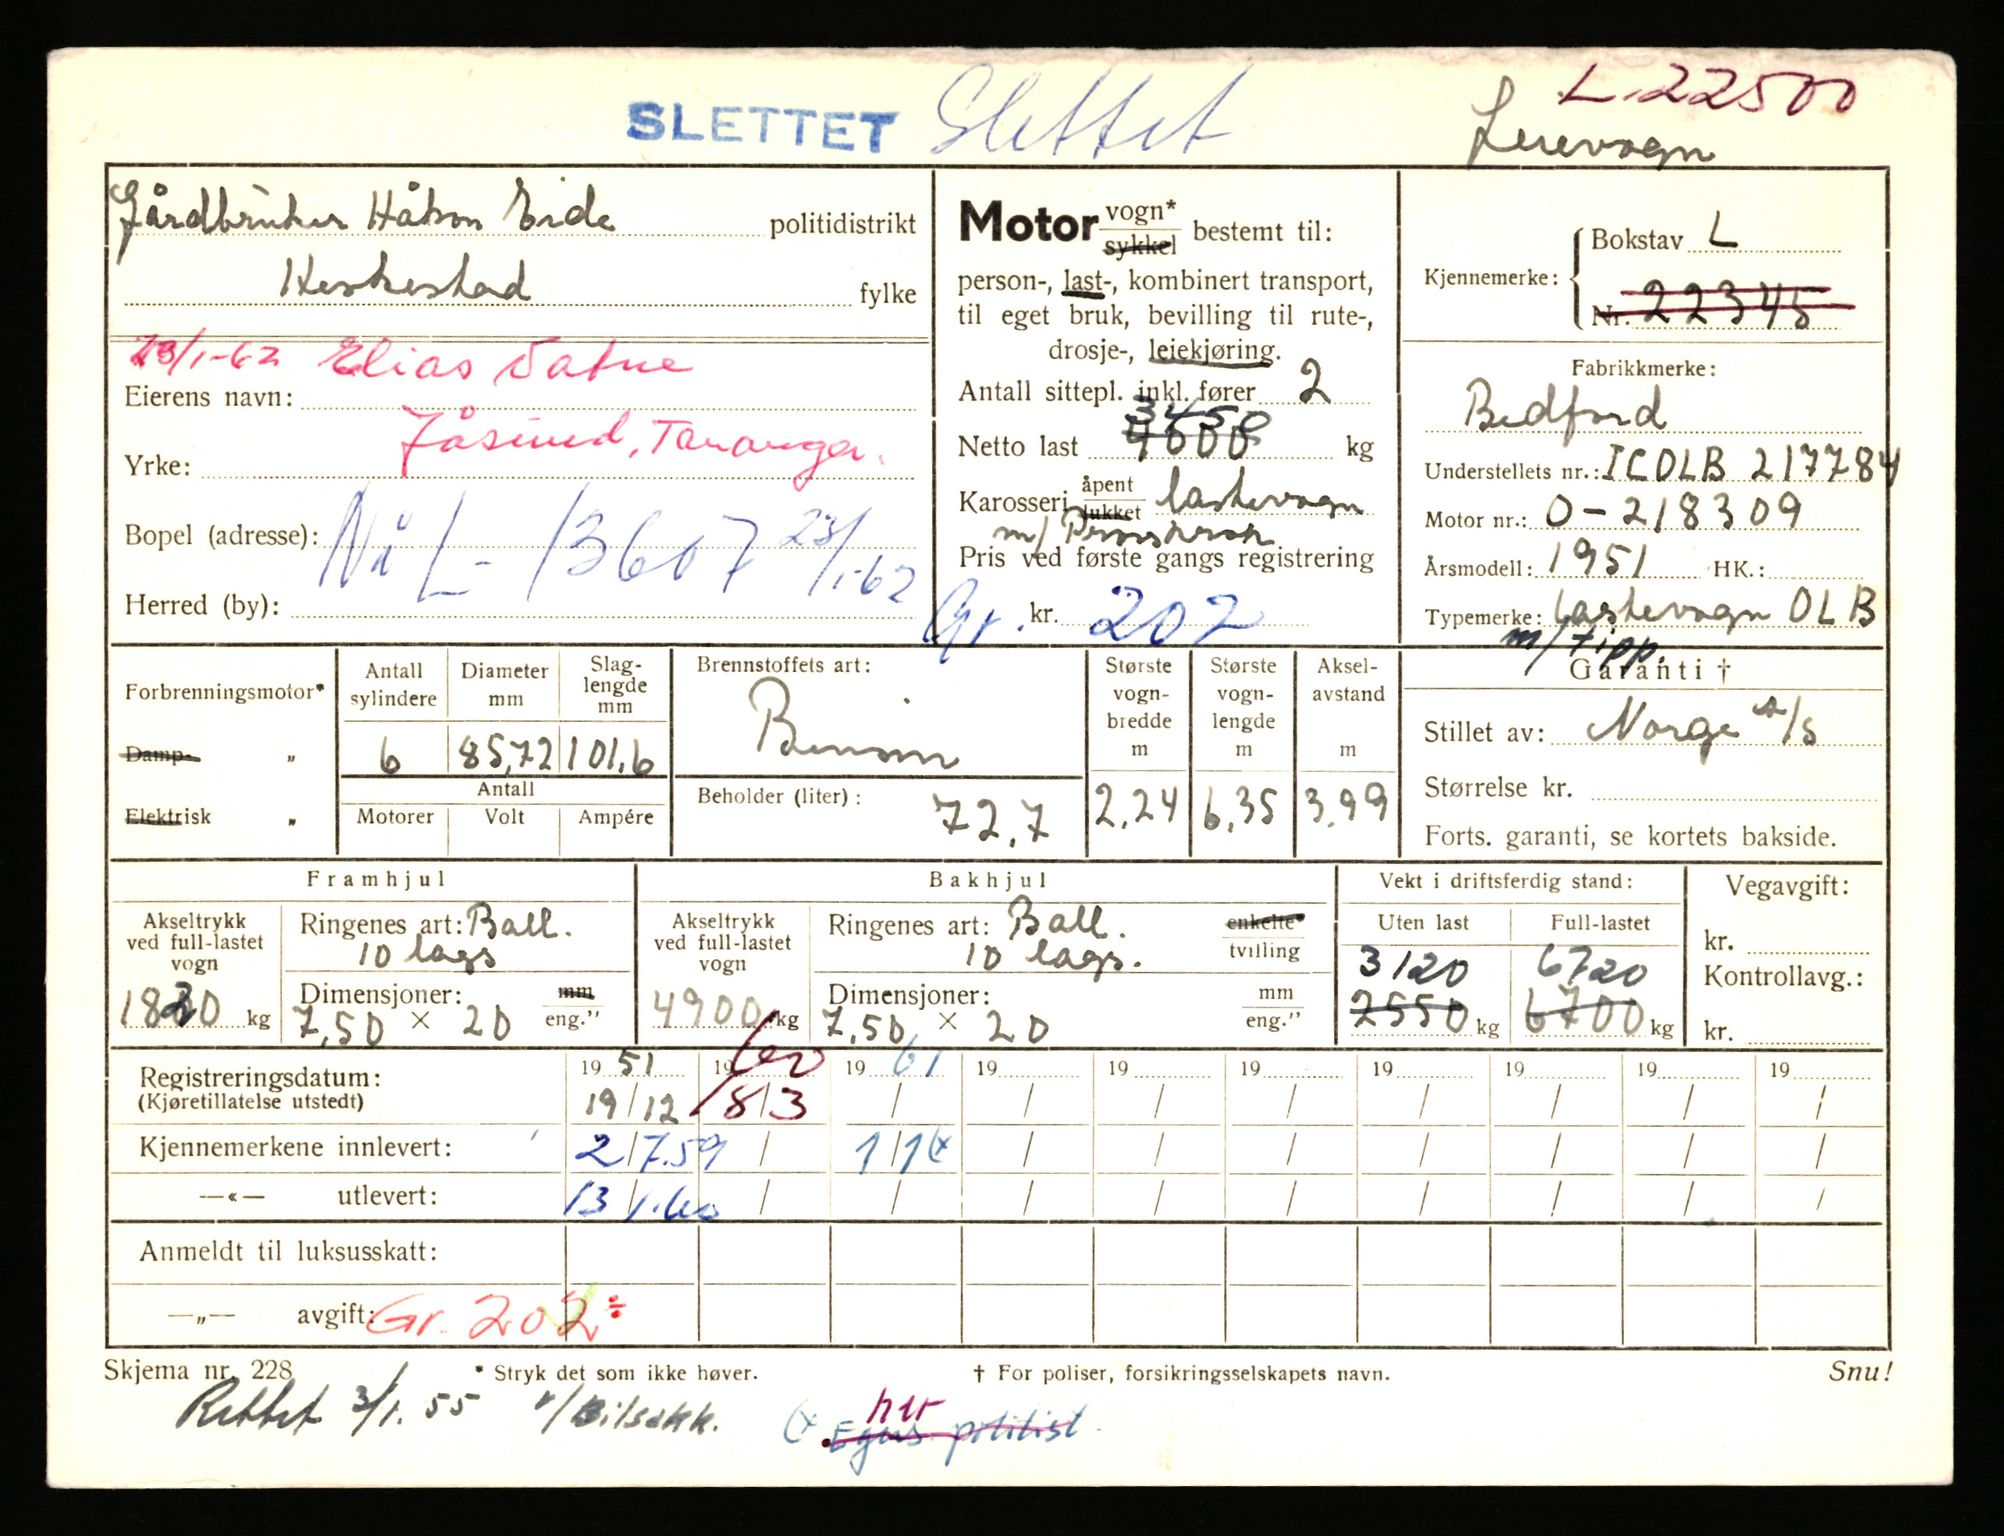 L-22500
SLETTET Slettet
Leievogn
Gårdbruker Håkon Eide politidistrikt
Heskestad fylke
23/1-62 Elias Vatne
Eierens navn:
Jåsund, Tananger.
Yrke:
Bopel (adresse):
Nå L-13607 23/1-62
Herred (by):
Motor vogn* sykkel bestemt til:
person-, last-, kombinert transport,
til eget bruk, bevilling til rute-,
drosje-, leiekjøring.
Antall sittepl. inkl. fører 2
3450
Netto last 4000 kg
Karosseri åpent lukket lastevogn
m/
Pris ved første gangs registrering
Gr. kr. 202
Kjennemerke: Bokstav L
Nr. 22345
Fabrikkmerke:
Bedford
Understellets nr.: ICOLB 217784
Motor nr.: O-218309
Årsmodell: 1951 HK.:
Typemerke: lastevogn OLB
m/tipp.
Forbrenningsmotor*
Damp- "
Elektrisk "
Antall sylindere
6
Diameter mm
85,72
Slag-lengde mm
101,6
Antall
Motorer Volt Ampére
Brennstoffets art:
Bensin
Beholder (liter): 72,7
Største vogn-bredde m
2,24
Største vogn-lengde m
6,35
Aksel-avstand m
3,99
Garanti †
Stillet av: Norge A/S
Størrelse kr.
Forts. garanti, se kortets bakside.
Framhjul
Akseltrykk ved full-lastet vogn
1820 kg
Ringenes art: Ball.
10 lags
Dimensjoner: mm eng."
7,50 × 20
Bakhjul
Akseltrykk ved full-lastet vogn
4900 kg
Ringenes art: Ball.
10 lags.
enkelte* tvilling
Dimensjoner: mm eng."
7,50 × 20
Vekt i driftsferdig stand:
Uten last Full-lastet
3120 6720
2550 kg 6700 kg
Vegavgift:
kr.
Kontrollavg.:
kr.
Registreringsdatum: 1951 1960 1961 19 19 19 19 19 19 19
(Kjøretillatelse utstedt) 19/12 8/3 / / / / / / / /
Kjennemerkene innlevert: 2/7.59 / 1/1 (x / / / / / / /
—«— utlevert: 13/1.60 / / / / / / / / /
Anmeldt til luksusskatt:
—„— avgift: Gr. 202 ÷
Skjema nr. 228 * Stryk det som ikke høver. † For poliser, forsikringsselskapets navn. Snu!
Rettet 3/1.55 v/Bilsakk.
her
(x Egus politist